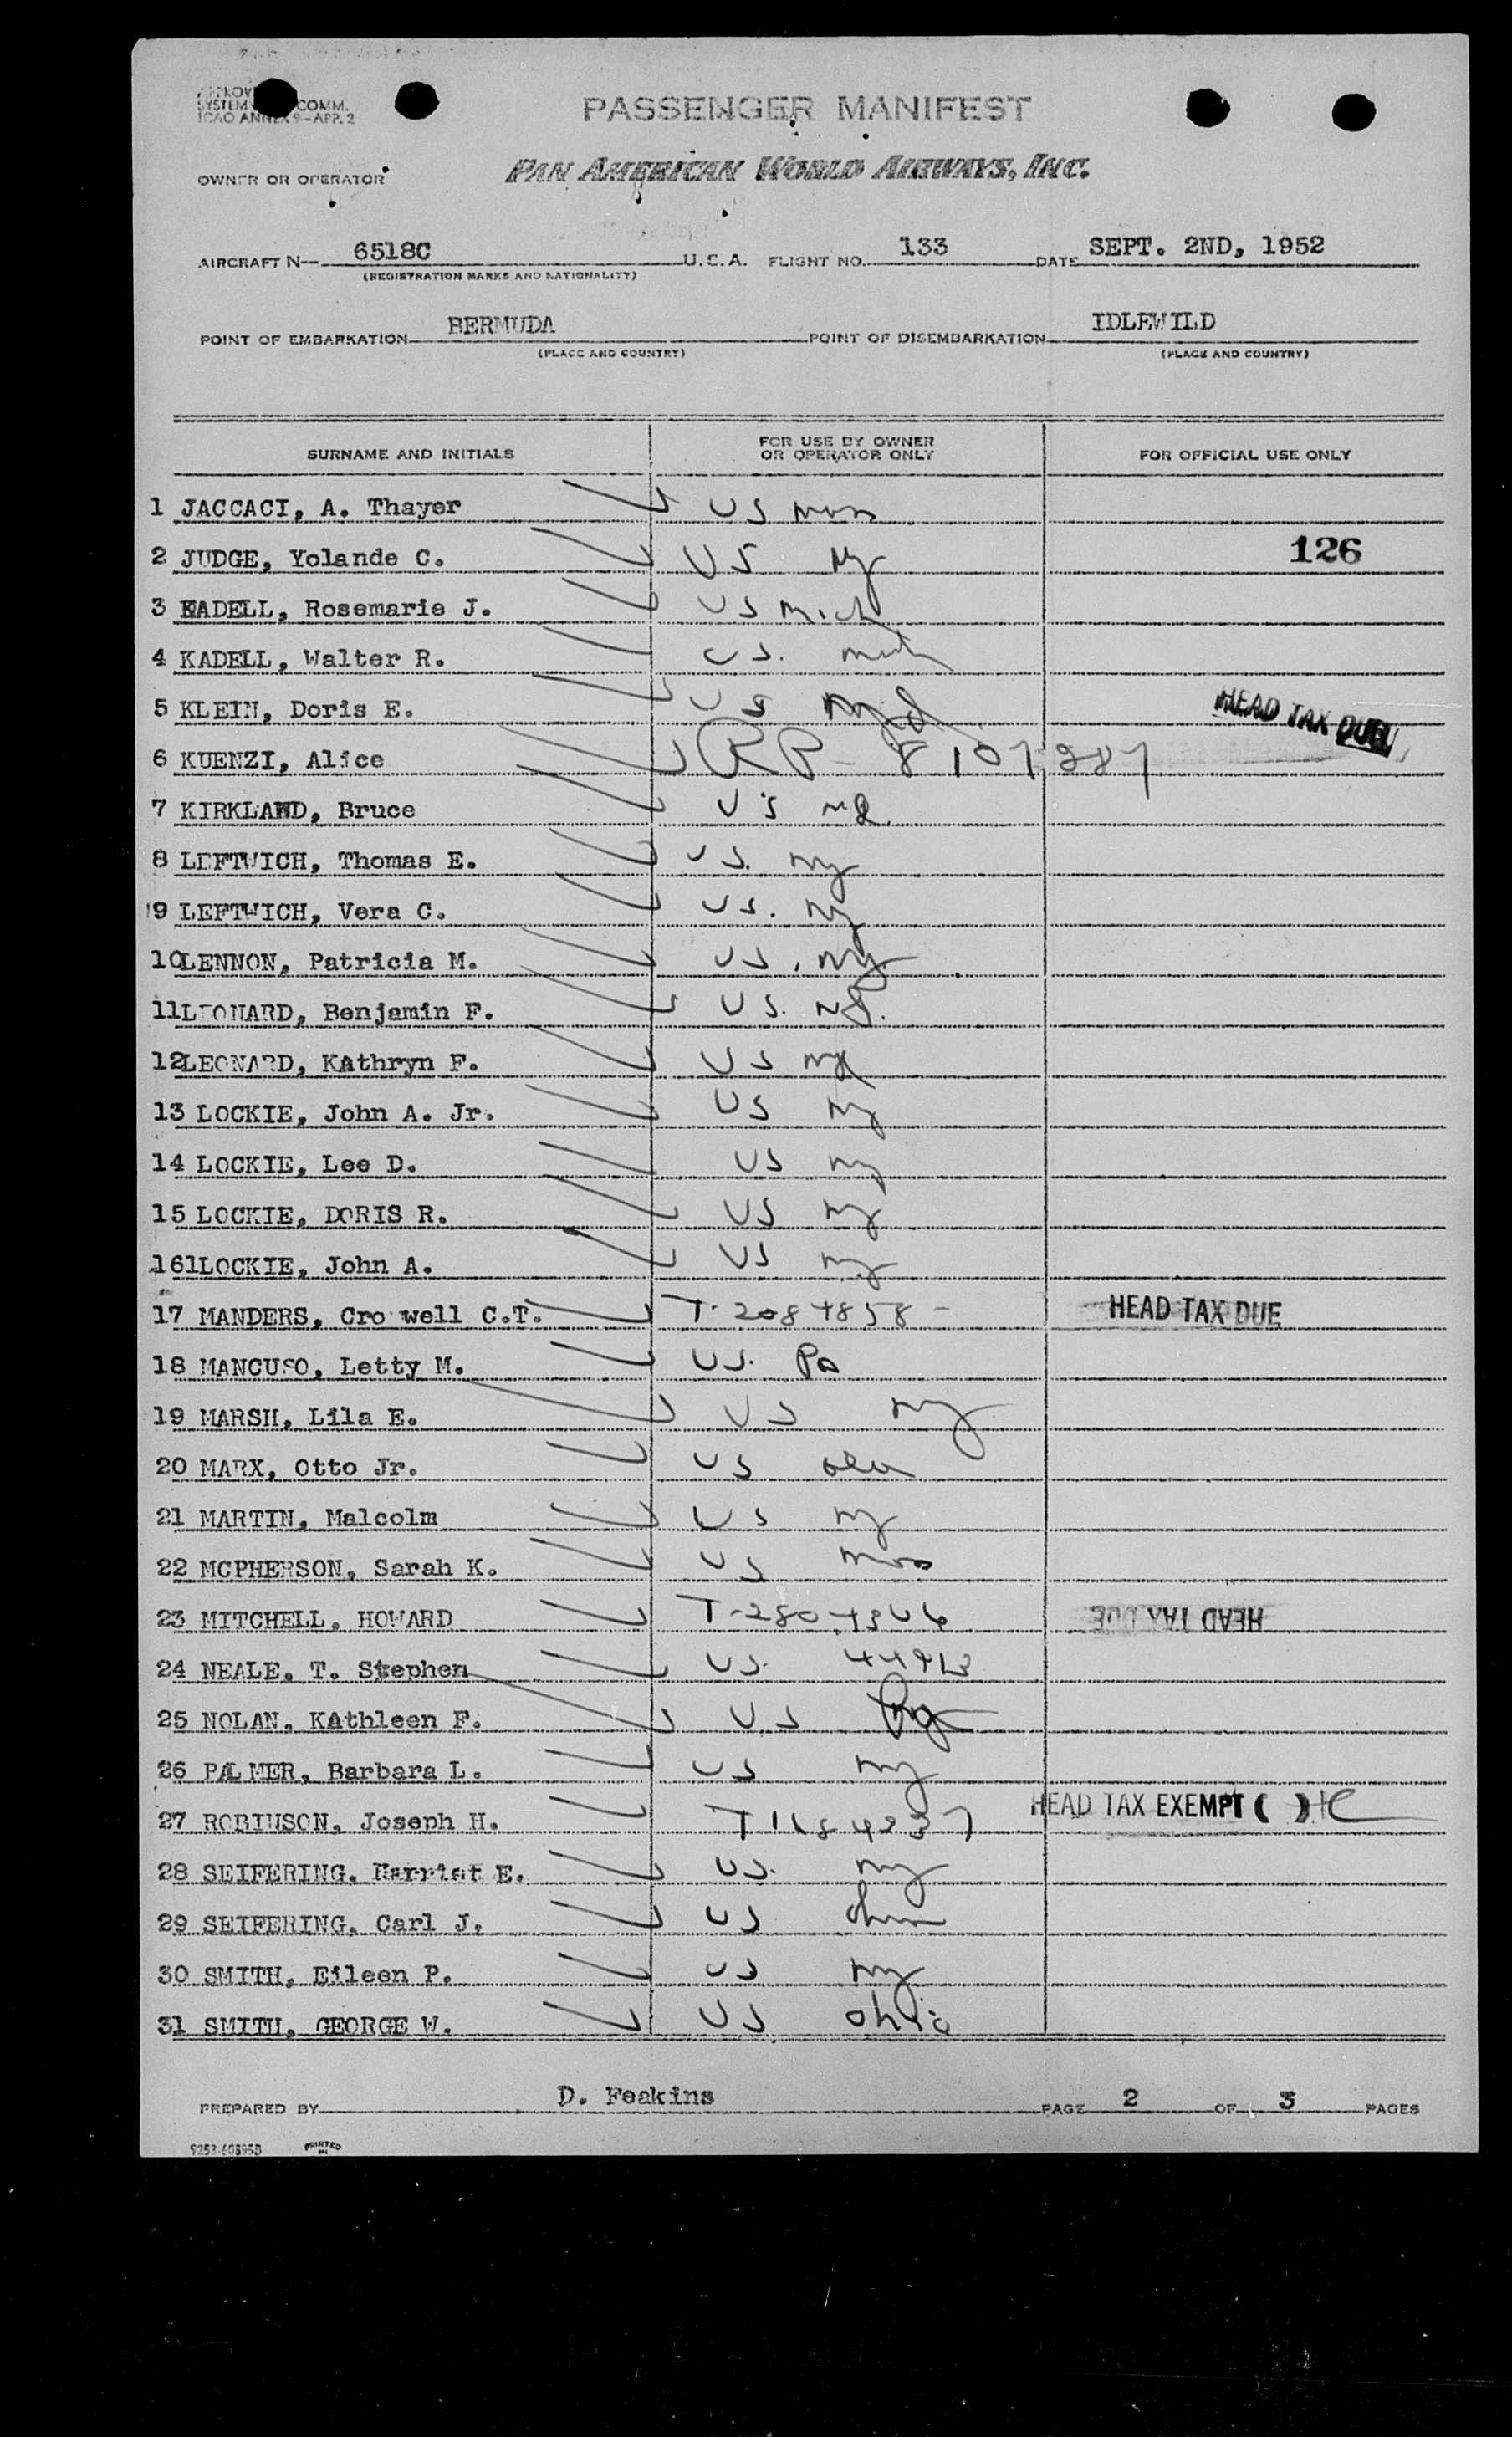 PASSENGER MANIFEST
COMM.
ICAO ANNEX 9-APP. 2
OWNER OR OPERATOR PAN AMERICAN WORLD AIRWAYS, INC.
AIRCRAFT N— 6518C U.S.A. FLIGHT NO. 133 DATE SEPT. 2ND, 1952
(REGISTRATION MARKS AND NATIONALITY)
POINT OF EMBARKATION BERMUDA POINT OF DISEMBARKATION IDLEWILD
(PLACE AND COUNTRY) (PLACE AND COUNTRY)
SURNAME AND INITIALS FOR USE BY OWNER OR OPERATOR ONLY FOR OFFICIAL USE ONLY
1 JACCACI, A. Thayer US mass
2 JUDGE, Yolande C. US Ny 126
3 KADELL, Rosemarie J. US Mich
4 KADELL, Walter R. US. mich
5 KLEIN, Doris E. US HEAD TAX DUE
6 KUENZI, Alice RP
7 KIRKLAND, Bruce US
8 LEFTWICH, Thomas E. US. ny
9 LEFTWICH, Vera C. US. Ny
10 LENNON, Patricia M. US, Ny
11 LEONARD, Benjamin F. US. NJ.
12 LEONARD, KAthryn F. US NJ
13 LOCKIE, John A. Jr. US ny
14 LOCKIE, Lee D. US ny
15 LOCKIE, DORIS R. US ny
161LOCKIE, John A. US ny
17 MANDERS, Cro well C.T. T-2084858 - HEAD TAX DUE
18 MANCUSO, Letty M. US. Pa
19 MARSH, Lila E. US ny
20 MARX, Otto Jr. US
21 MARTIN, Malcolm US ny
22 MCPHERSON, Sarah K. US mass
23 MITCHELL, HOWARD HEAD TAX DUE
24 NEALE, T. Stephen US.
25 NOLAN, KAthleen F. US
26 PALMER, Barbara L. US ny
27 ROBINSON, Joseph H. HEAD TAX EXEMPT ( )
28 SEIFERING, Harriet E. US. ny
29 SEIFERING, Carl J. US
30 SMITH, Eileen P. US ny
31 SMITH, GEORGE W. US ohio
PREPARED BY D. Feakins PAGE 2 OF 3 PAGES
PRINTED